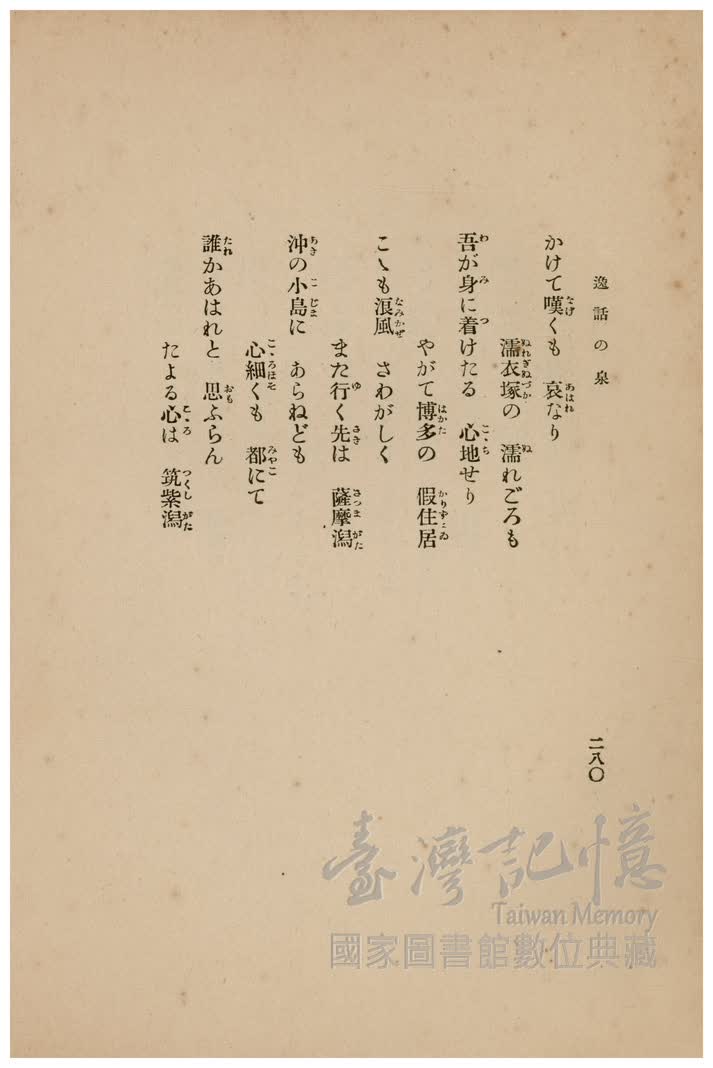 逸話の泉
かけて嘆くも　哀なり
濡衣塚の　濡れごろも
吾が身に着けたる　心地せり
やがて博多の　假住居
こゝも浪風　さわがしく
また行く先は　薩摩潟
沖の小島に　あらねども
心細くも　都にて
誰かあはれと　思ふらん
たよる心は　筑紫潟
二八〇
臺灣記憶
Taiwan Memory
國家圖書館數位典藏